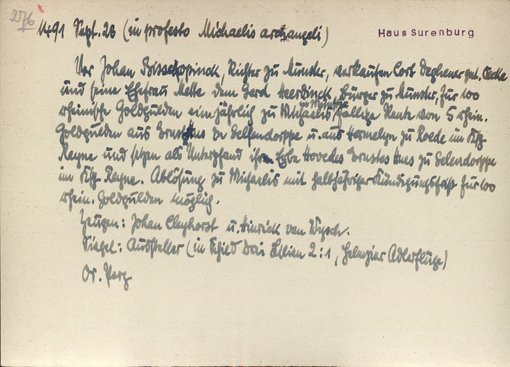 1491 Sept. 28 (in profesto Michaelis archangeli)
Haus Surenburg
Vor Johan Bisscopinck, Richter zu Munster, verkaufen Cort Degener gnt.
und seine Ehefrau Mette dem Gerd Heerdinck, Bürger zu Munster, für 100
rheinische Goldgulden eine jährlich zu Michaelis fällige Rente von 5 rhein.
Goldgulden aus to Delsendorppe u. aus to Roede im Ksp.
Reyne und setzen als Unterpfand ihre Erbe Hovedes Hues zu Delsendorppe
im Ksp. Reyne. Ablösung zu Michaelis mit halbjähriger Kündigungsfrist für 100
rhein. Goldgulden möglich.
Zeugen: Johan Cleyhorst u. Hinrick van
Siegel: Aussteller (in Schild drei Lilien 2:1, Helmzier Adlerflüge)
Or. Perg